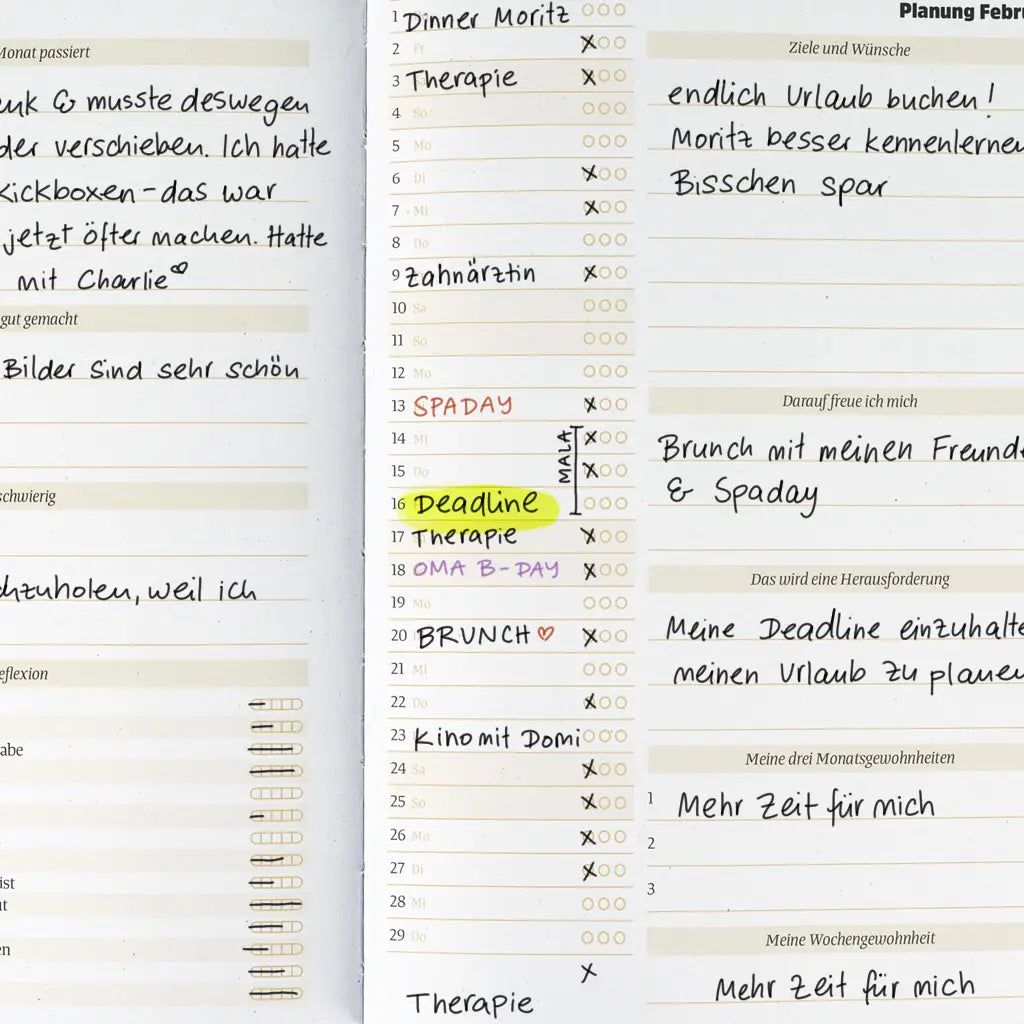 Monat passiert
musste deswegen
verschieben. Ich hatte
Kickboxen - das war
jetzt öfter machen. Hatte
mit Charlie♡
gut gemacht
Bilder sind sehr schön
schwierig
weil ich
abe
ist
en
1 Dinner Moritz
2 Fr
3 Therapie
4 So
5 Mo
6 Di
7 Mi
8 Do
9 Zahnärztin
10 Sa
11 So
12 Mo
13 SPADAY
14 Mi
MALA
15 Do
16 Deadline
17 Therapie
18 OMA B-DAY
19 Mo
20 BRUNCH ♡
21 Mi
22 Do
23 Kino mit Domi
24 Sa
25 So
26 Mo
27 Di
28 Mi
29 Do
Therapie
Planung Febru
Ziele und Wünsche
endlich Urlaub buchen!
Moritz besser kennenlernen
Bisschen spar
Darauf freue ich mich
Brunch mit meinen Freunde
& Spaday
Das wird eine Herausforderung
Meine Deadline einzuhalte
meinen Urlaub zu planen
Meine drei Monatsgewohnheiten
1 Mehr Zeit für mich
2
3
Meine Wochengewohnheit
Mehr Zeit für mich